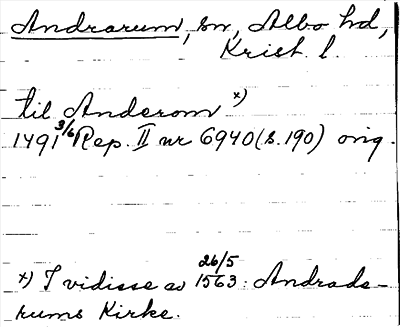 Andrarum, sn, Albo hd,
Krist. l.
til Anderom x)
1491 3/6 Rep. II nr 6940 (s. 190) orig.
x) I vidisse av 26/5 1563: Andrads-
rums Kirke.